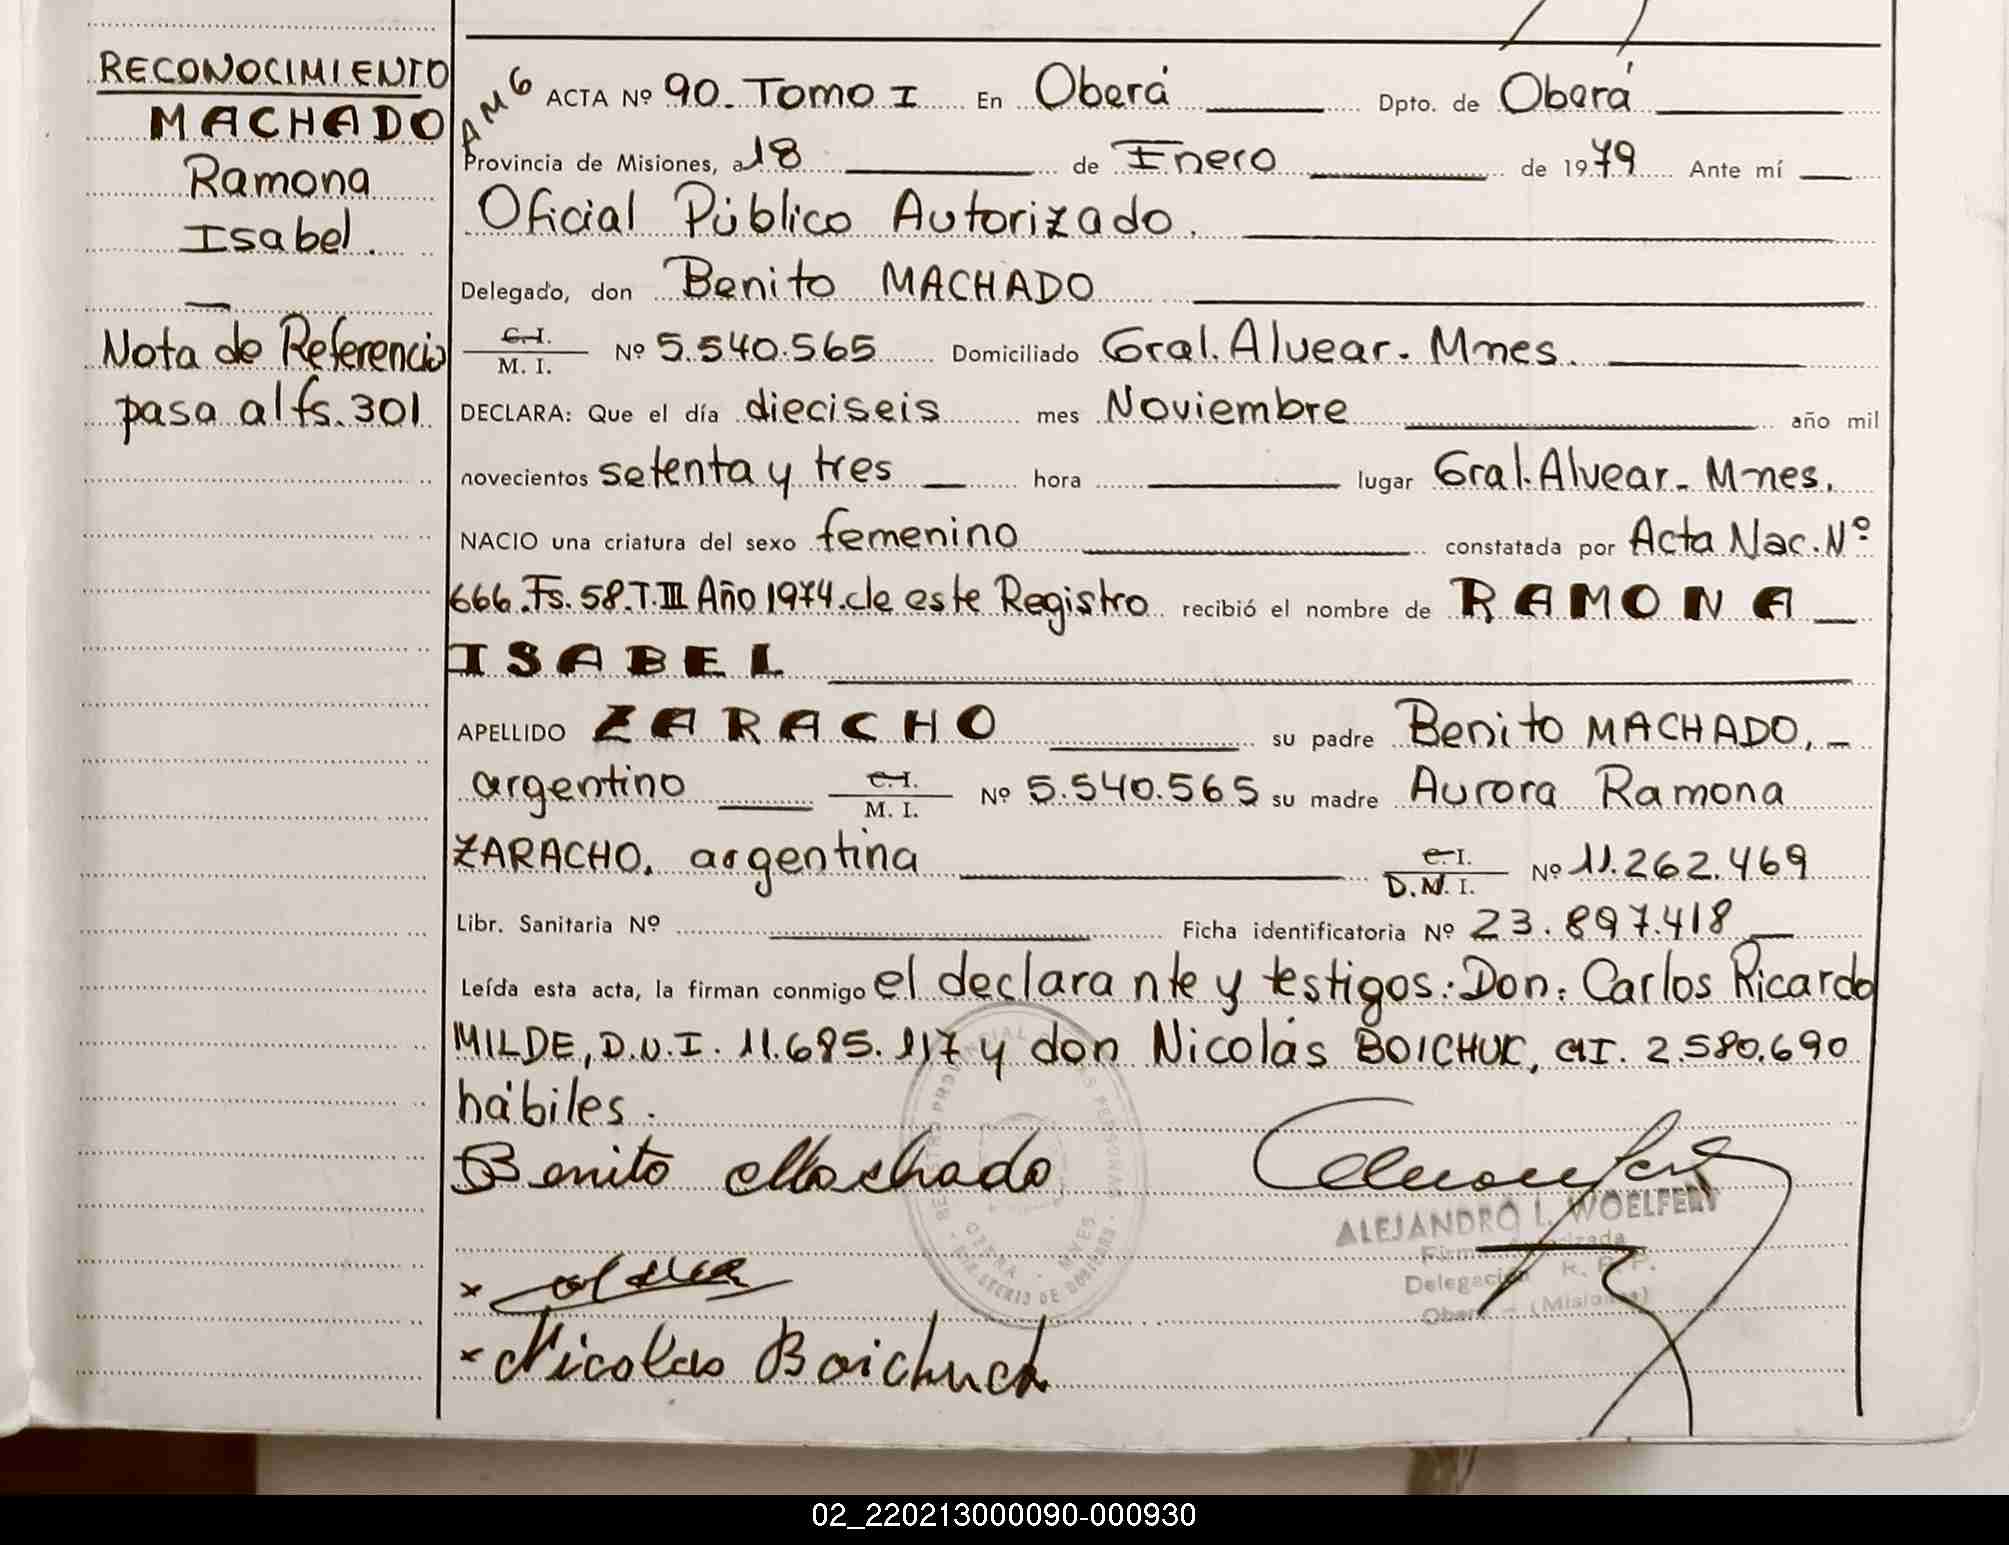 RECONOCIMIENTO
MACHADO
Ramona
Isabel.
Nota de Referencia
pasa al fs. 301
AM6
ACTA Nº 90. Tomo I En Oberá Dpto. de Oberá
Provincia de Misiones, a 18 de Enero de 1979 Ante mí
Oficial Público Autorizado.
Delegado, don Benito MACHADO
C.I. / M. I. Nº 5.540.565 Domiciliado Gral. Alvear. Mnes.
DECLARA: Que el día dieciseis mes Noviembre año mil
novecientos setenta y tres hora lugar Gral. Alvear. Mnes.
NACIO una criatura del sexo femenino constatada por Acta Nac. Nº
666. Fs. 58. T. III Año 1974. de este Registro recibió el nombre de RAMONA
ISABEL
APELLIDO ZARACHO su padre Benito MACHADO,
argentino C.I. / M. I. Nº 5.540.565 su madre Aurora Ramona
ZARACHO, argentina C.I. / D.N.I. Nº 11.262.469
Libr. Sanitaria Nº Ficha identificatoria Nº 23.897.418
Leída esta acta, la firman conmigo el declarante y testigos: Don: Carlos Ricardo
MILDE, D.N.I. 11.685.117 y don Nicolás BOICHUK, C.I. 2.580.690
hábiles.
Benito Machado
ALEJANDRO I. WOELFERT
Firma Autorizada
Delegación R. P. P.
Oberá - (Misiones)
x
x Nicolas Boichuck
02_220213000090-000930